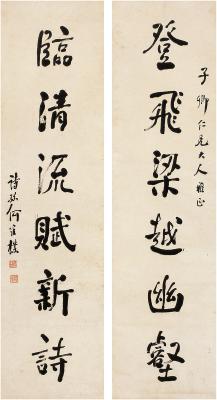 子卿仁兄大人雅正
登飛梁越幽壑
臨清流賦新詩
詩孫何維樸